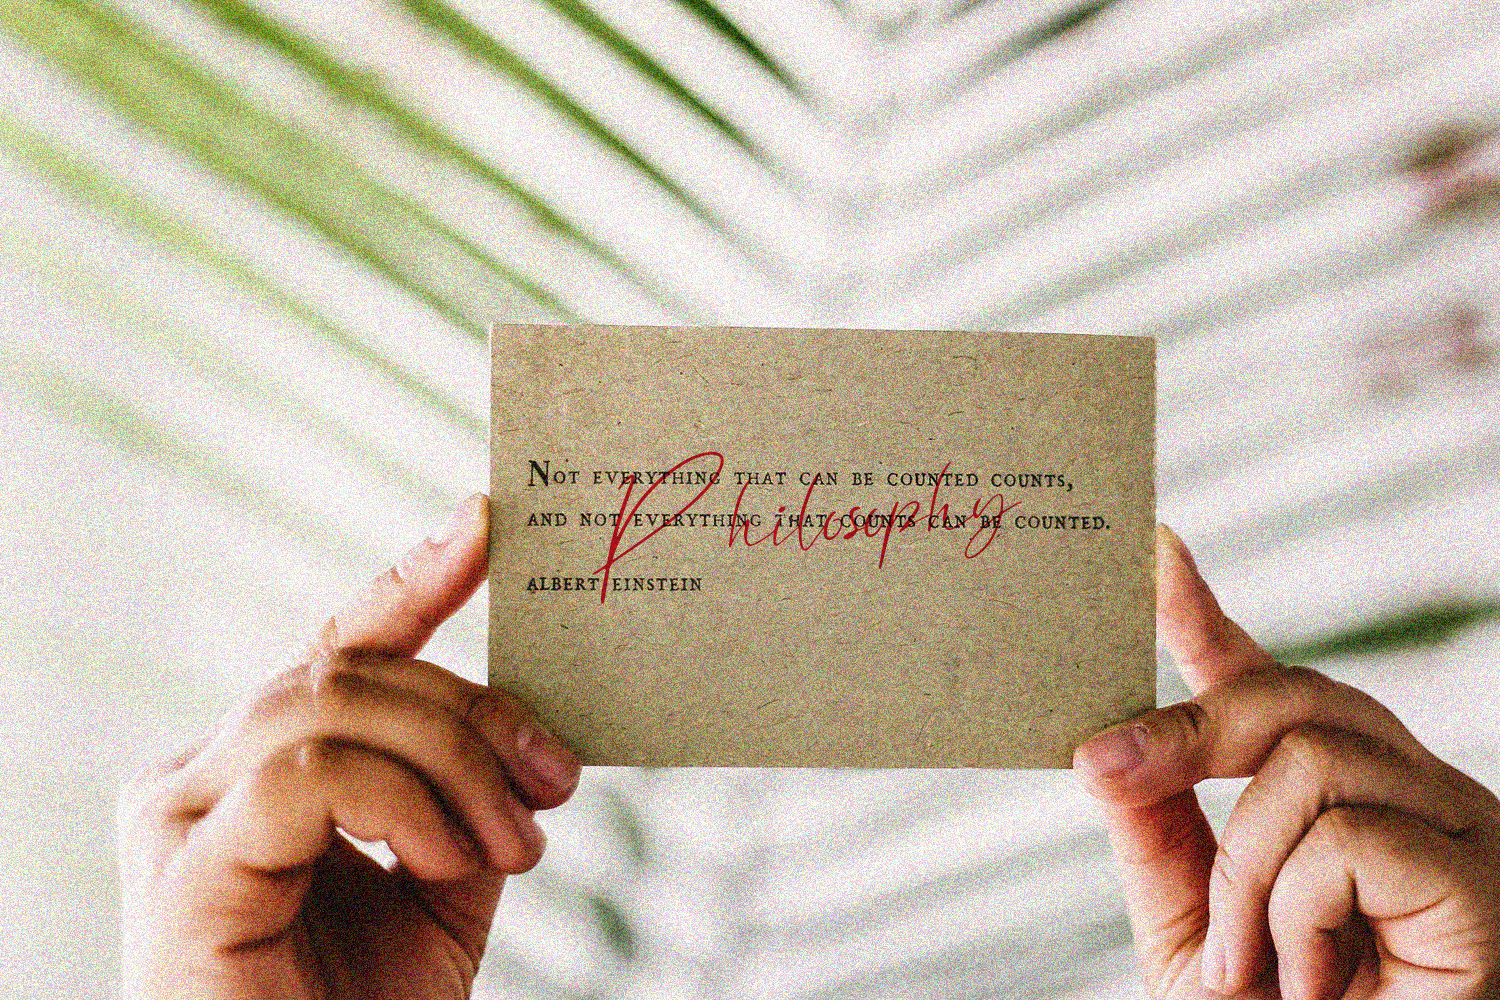 Not everything that can be counted counts,
and not everything that counts can be counted.
Philosophy
albert einstein